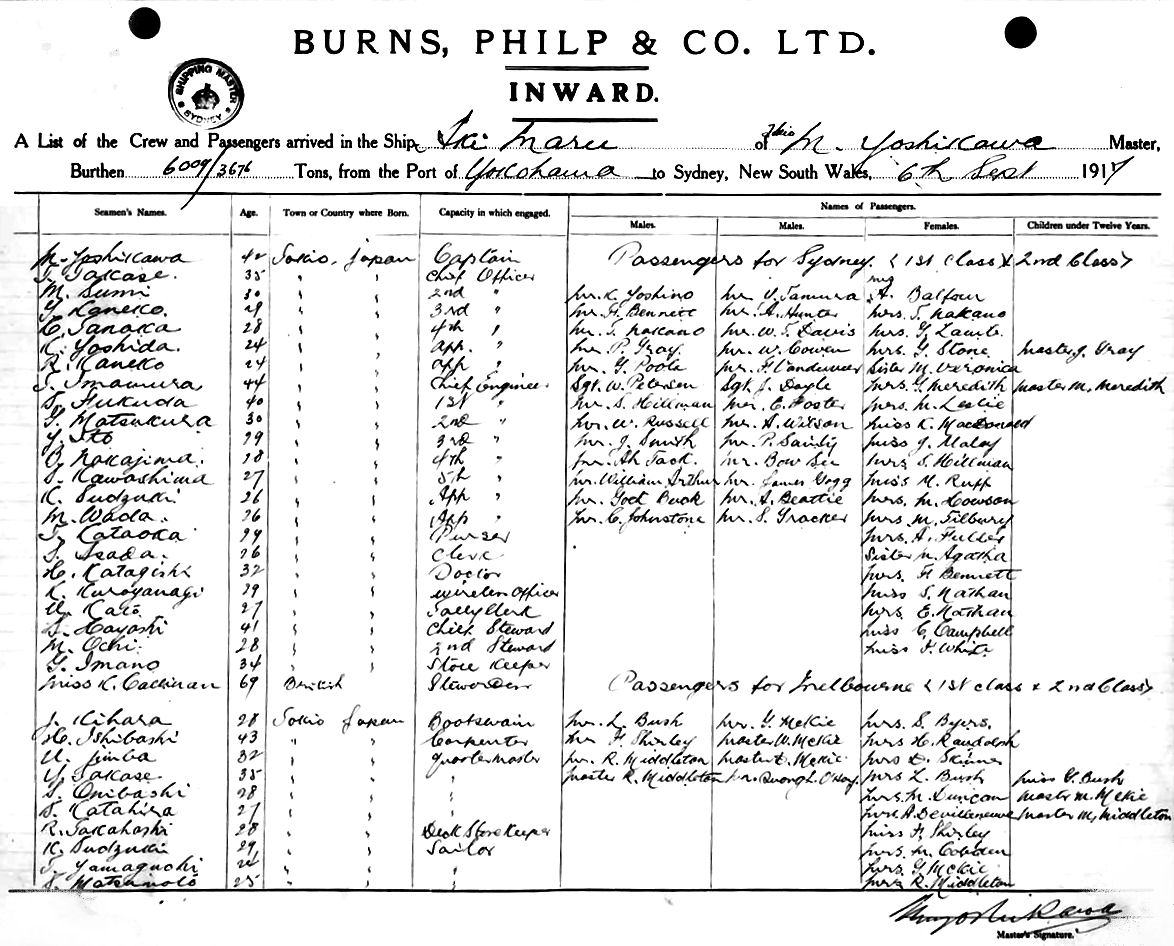 BURNS, PHILP & CO. LTD.
SHIPPING MASTER
SYDNEY
INWARD.
A List of the Crew and Passengers arrived in the Ship Iki Maru of Tokio M. Yoshikawa Master,
Burthen 6009/3676 Tons, from the Port of Yokohama to Sydney, New South Wales, 6th Sept 1917
Names of Passengers.
Seamen's Names. Age. Town or Country where Born. Capacity in which engaged. Males. Males. Females. Children under Twelve Years.
M. Yoshikawa 42 Tokio, Japan Captain Passengers for Sydney. <1st Class> <2nd Class>
T. Takase. 35 " " Chief Officer
M. Sumi 30 " " 2nd " Mr. K. Yoshino Mr. U. Tamura Mrs A. Balfour
Y. Kaneko. 29 " " 3rd " Mr. H. Bennett Mr. A. Hunter Mrs. T. Nakano
C. Tanaka 28 " " 4th " Mr. T. Nakano Mr. W. T. Davis Mrs. Y. Lamb.
K. Yoshida. 24 " " App. " Mr. P. Gray. Mr. W. Cowen Mrs. G. Stone Master J. Gray
R. Kaneko 24 " " App " Mr. G. Poole Mr. H. Sister M. Veronica
T. Imamura 44 " " Chief Engineer Sgt. W. Petersen Sgt. J. Doyle Mrs. G. Meredith Master M. Meredith
S. Fukuda 40 " " 1st " Mr. S. Hillman Mr. E. Foster Mrs. M. Leslie
G. Matsukura 30 " " 2nd " Mr. W. Russell Mr. A. Wilson Miss K. MacDonald
Y. Ito 29 " " 3rd " Mr. J. Smith Mr. P. Sandy Miss J. Maloy
B. Nakajima. 28 " " 4th " Mr. Ah Tack. Mr. Bow See Mrs. S. Hillman
S. Kawashima 27 " " 5th " Mr. William Arthur Mr. James Gogg Miss M. Rupp
K. Sudzuki 26 " " App " Mr. Goet Buck Mr. A. Beattie Mrs. M. Cowson
M. Wada. 26 " " App " Mr. C. Johnstone Mr. S. Gracker Mrs. M. Tilbury
T. Kataoka 29 " " Purser Mrs. A. Fuller
S. Isada. 26 " " Clerk Sister M. Agatha
H. Katagishi 32 " " Doctor Mrs. H. Bennett
K. Kuroyanagi 29 " " Wireless Officer Miss S. Nathan
U. Kato 27 " " Tally Clerk Mrs. E. Nathan
S. Hayashi 41 " " Chief Steward Miss C. Campbell
M. Ochi. 28 " " 2nd Steward Miss F. White
G. Imano 34 " " Store Keeper
Miss K. Callinan 69 British Stewardess Passengers for Melbourne <1st class & 2nd Class>
J. Kihara 28 Tokio Japan Bootswain Mr. L. Bush Mr. G. McKie Mrs. S. Byers.
H. Ishibashi 43 " " Carpenter Mr F. Shirley Master W. McKie Mrs. H. Randolph
U. Jimba 32 " " Quartermaster Mr. R. Middleton Master E. McKie Mrs E. Skinner
Y. Takase 35 " " " Master R. Middleton Mrs L. Bush Miss G. Bush
S. Onibashi 28 " " " Mrs. M. Duncan Master M. McKie
S. Katahira 27 " " " Mrs. A. Devilleneuve Master M. Middleton
R. Takahashi 28 " " Deck Store Keeper Miss F. Shirley
K. Sudzuki 29 " " Sailor Mrs. M. Cobden
T. Yamaguchi 24 " " " Mrs. G. McKie
S. Matsumoto 25 " " " Mrs. R. Middleton
M Yoshikawa
Master's Signature.